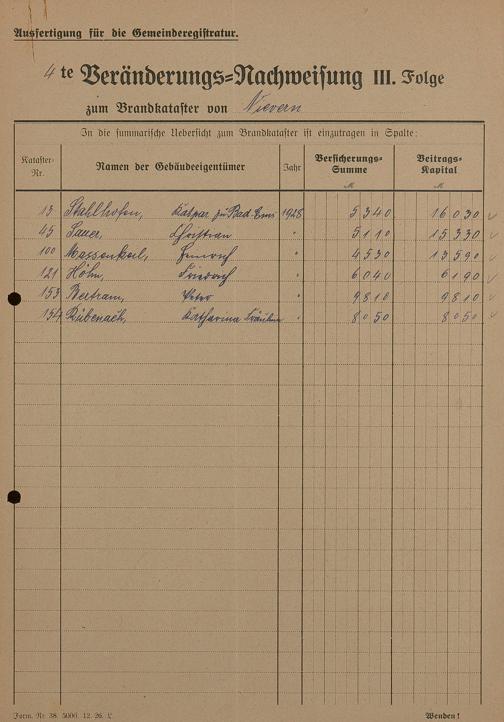 Ausfertigung für die Gemeinderegistratur.
4 te Veränderungs=Nachweisung III. Folge
zum Brandkataster von Nievern
In die summarische Uebersicht zum Brandkataster ist einzutragen in Spalte:
Kataster-Nr. Namen der Gebäudeeigentümer Jahr Versicherungs-Summe Beitrags-Kapital
M M
13 Stahlhofen, Kaspar zu Bad Ems 1928 5340 16030
45 Sauer, Christian " 5110 15330
100 Massenkeil, Heinrich " 4530 13590
121 Höhn, Friedrich " 6040 6190
153 Bertram, Peter " 9810 9810
154 Rübenach, Katharina Fräulein " 8050 8050
Form. Nr. 38. 5000. 12. 26. L Wenden!